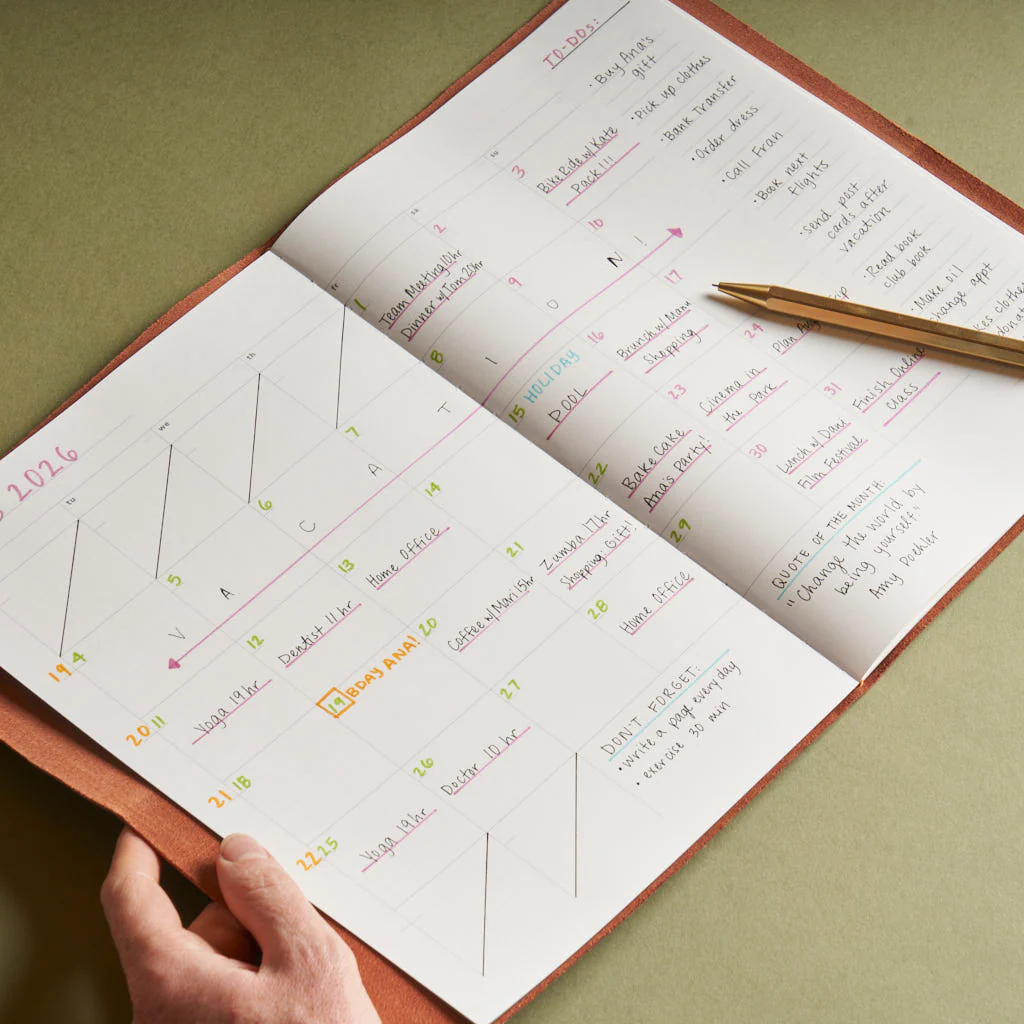 2026
tu
we
th
sa
su
19
4
5
6
7
1
Team Meeting 10hr
Dinner w/Tom 20hr
2
3
Bike Ride w/ Kate
Pack!!!
20
11
Yoga 19hr
12
Dentist 11 hr
13
Home Office
14
8
9
10
V A C A T I O N !
15
HOLIDAY
POOL
16
Brunch w/Manu
Shopping
17
21
18
19
BDAY ANA!
20
Coffee w/Mari 15hr
21
Zumba 17hr
Shopping: Gift!
22
Bake Cake
Ana's Party!
23
Cinema in
the Park
24
Plan
22
25
Yoga 19hr
26
Doctor 10 hr
27
28
Home Office
29
30
Lunch w/ Dani
Film Festival
31
Finish Online
class
TO-DOs:
• Buy Ana's
gift
• Pick up clothes
• Bank Transfer
• Order dress
• Call Fran
• Book next
flights
• send post
cards after
vacation
• Read book
club book
• Make oil
change appt
clothes
QUOTE OF THE MONTH:
"Change the world by
being yourself."
Amy Poehler
DON'T FORGET:
• write a page every day
• exercise 30 min